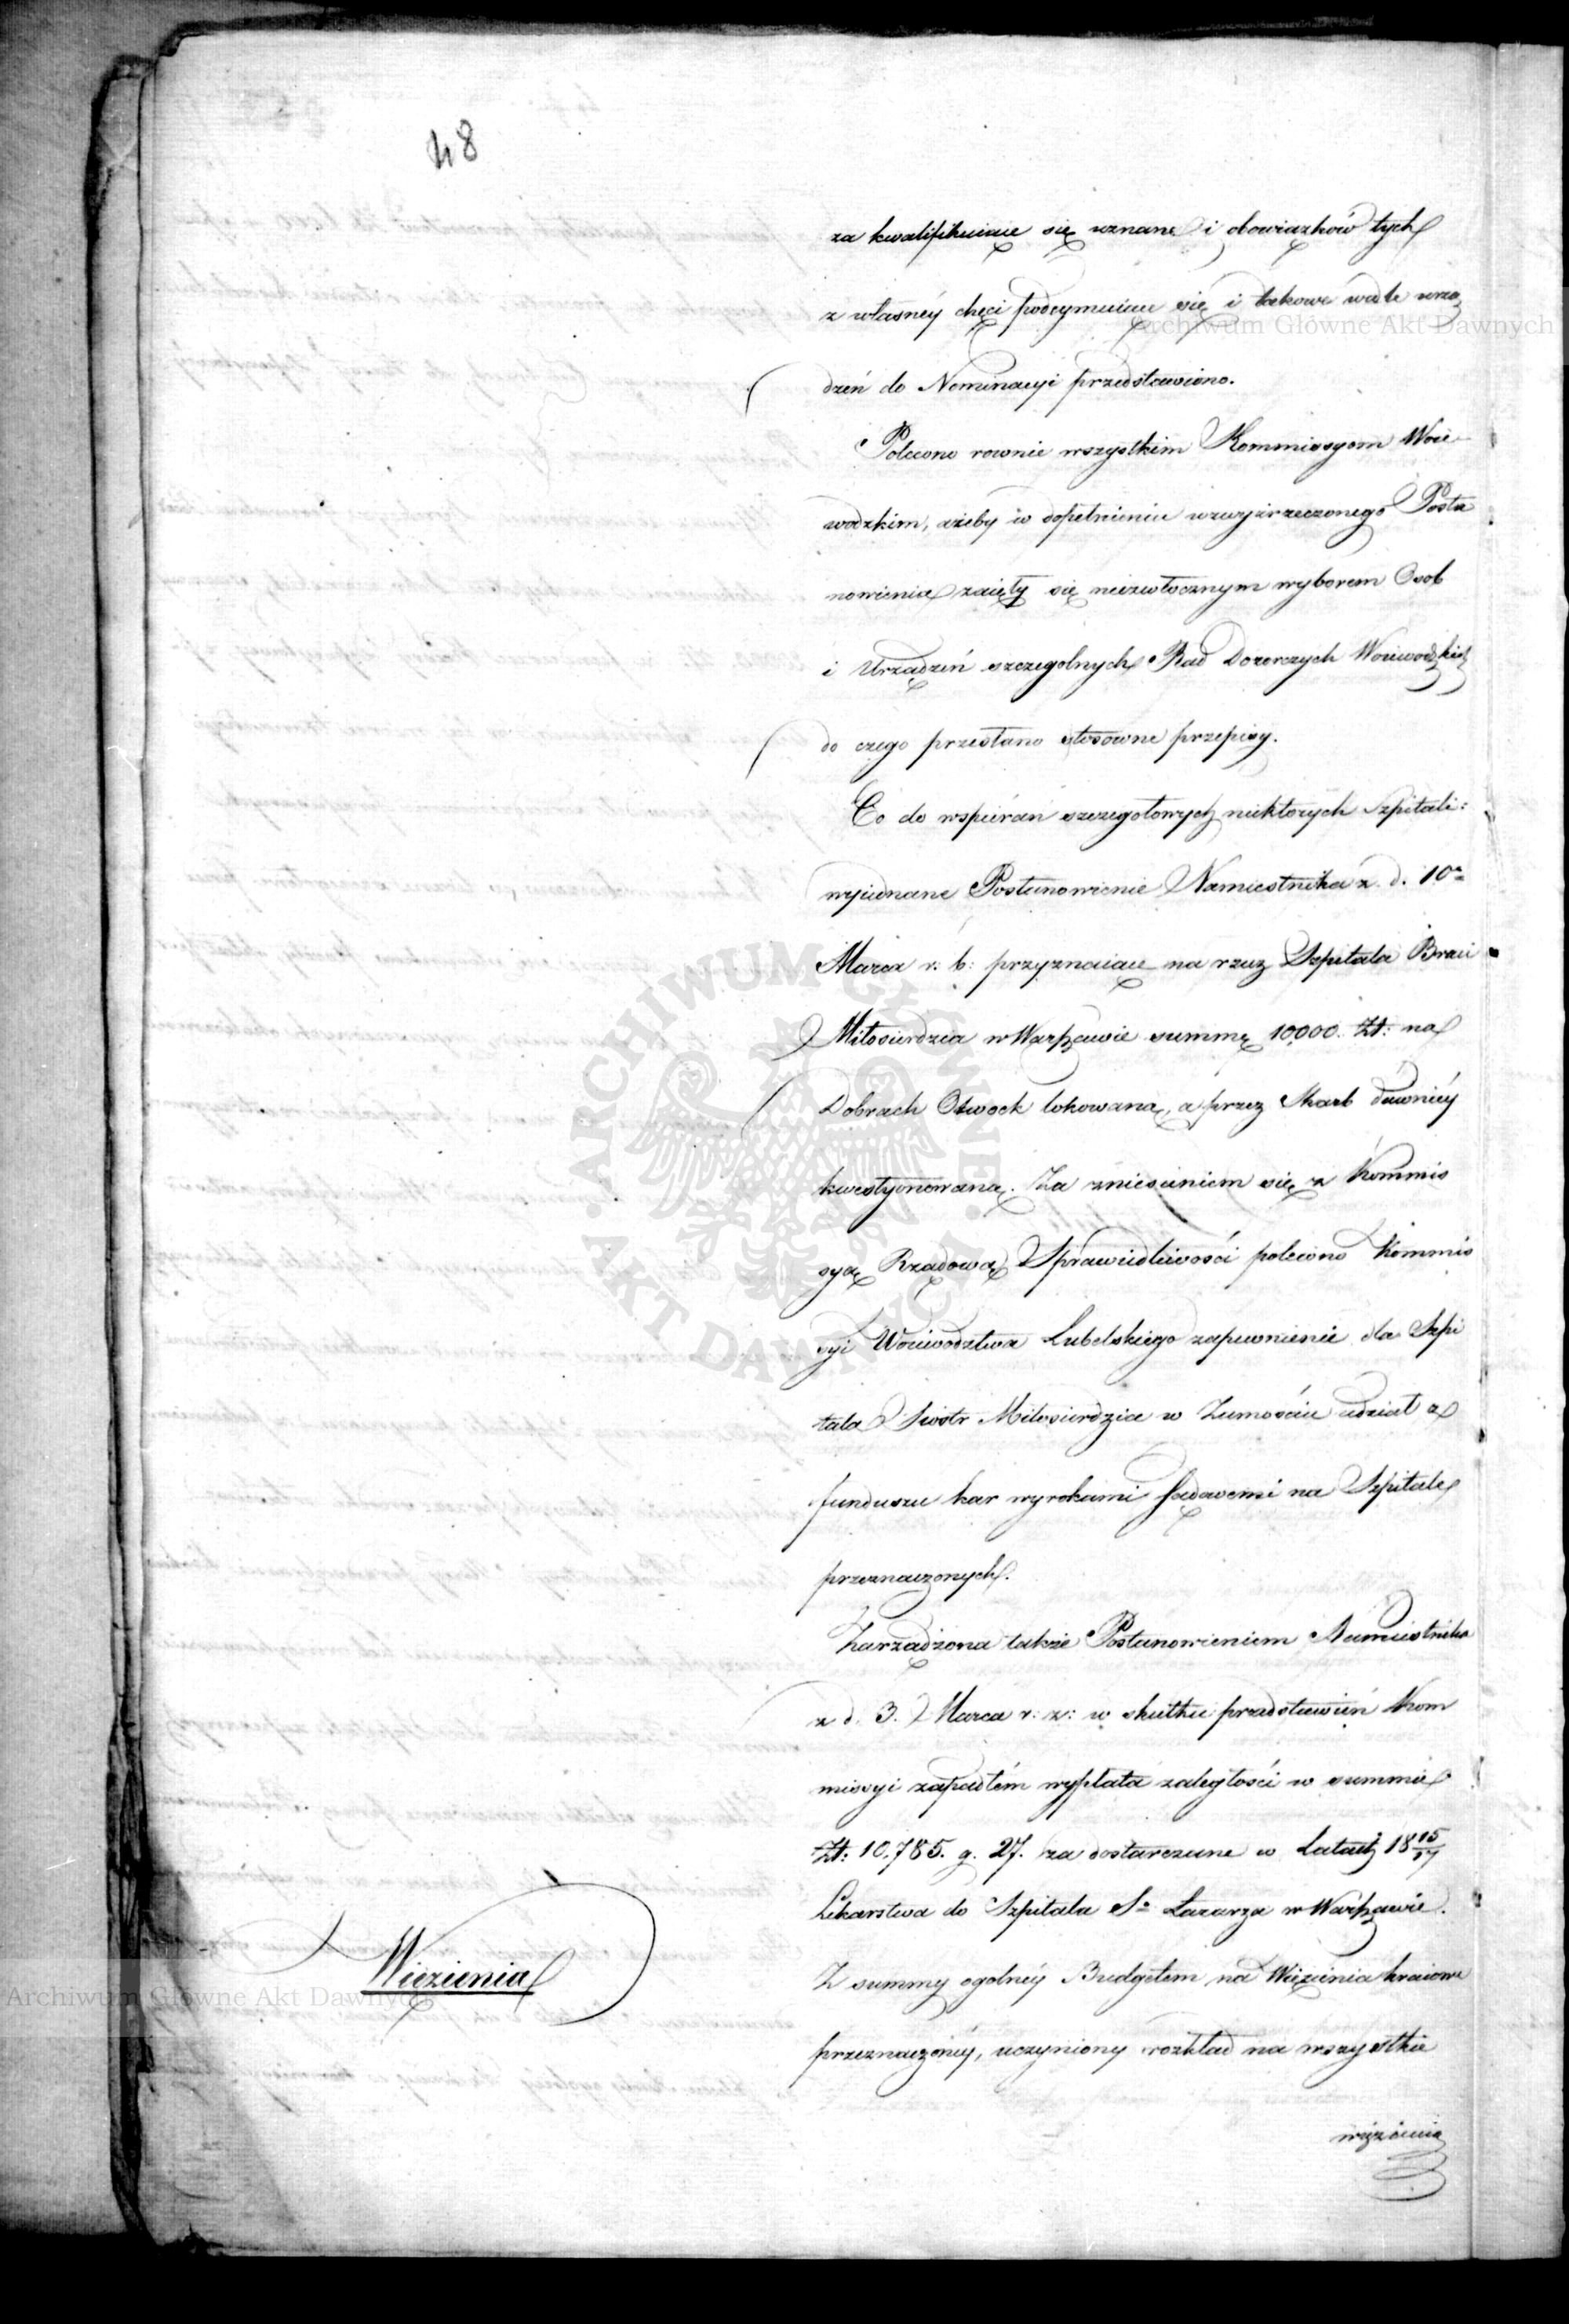 48
za kwalifikuiące się uznane i obowiązków tych
z własnéy chęci podeymuiące się i takowe wedle urzą
dzeń do Nominacyi przedstawiono.
Polecono rownie wszystkim Kommissyom Woie
wodzkim, ażeby w dopełnieniu wzwyżrzeczonego Posta
nowienia zaięły się niezwłocznym wyborem Osob
i Urządzeń szczegolnych Rad Dozorczych Woiewodzkich
do czego przesłano stosowne przepisy.
Co do wspierań szczegołowych niektorych Szpitali:
wyiednane Postanowienie Namiestnika z d. 10º
Marca r: b: przyznaiące na rzecz Szpitala Braci
Miłosierdzia w Warszawie summę 10,000. Zł: na
Dobrach Otwock lokowaną, a przez Skarb dawniéy
kwestyonowaną. Za zniesieniem się z Kommis
syą Rządową Sprawiedliwości polecono Kommis
syi Woiewodztwa Lubelskiego zapewnienie dla Szpi
tala Siostr Miłosierdzia w Zamościu udział z
funduszu kar wyrokami sądowemi na Szpitale
przeznaczonych.
Zarządzona także Postanowieniem Namiestnika
z d. 3. Marca r: z: w skutku przedstawień Kom
missyi zapadłém wypłata zaległości w summie
Zł: 10,785. g. 27. za dostarczane w Latach 18 15/17
Lekarstwa do Szpitala Sº Łazarza w Warszawie.
Więzienia
Z summy ogolnéy Budgetem na Więzienia kraiowe
przeznaczonéy, uczyniony rozkład na wszystkie
więzienia
Archiwum Główne Akt Dawnych
ARCHIWUM GŁÓWNE AKT DAWNYCH
Archiwum Główne Akt Dawnych